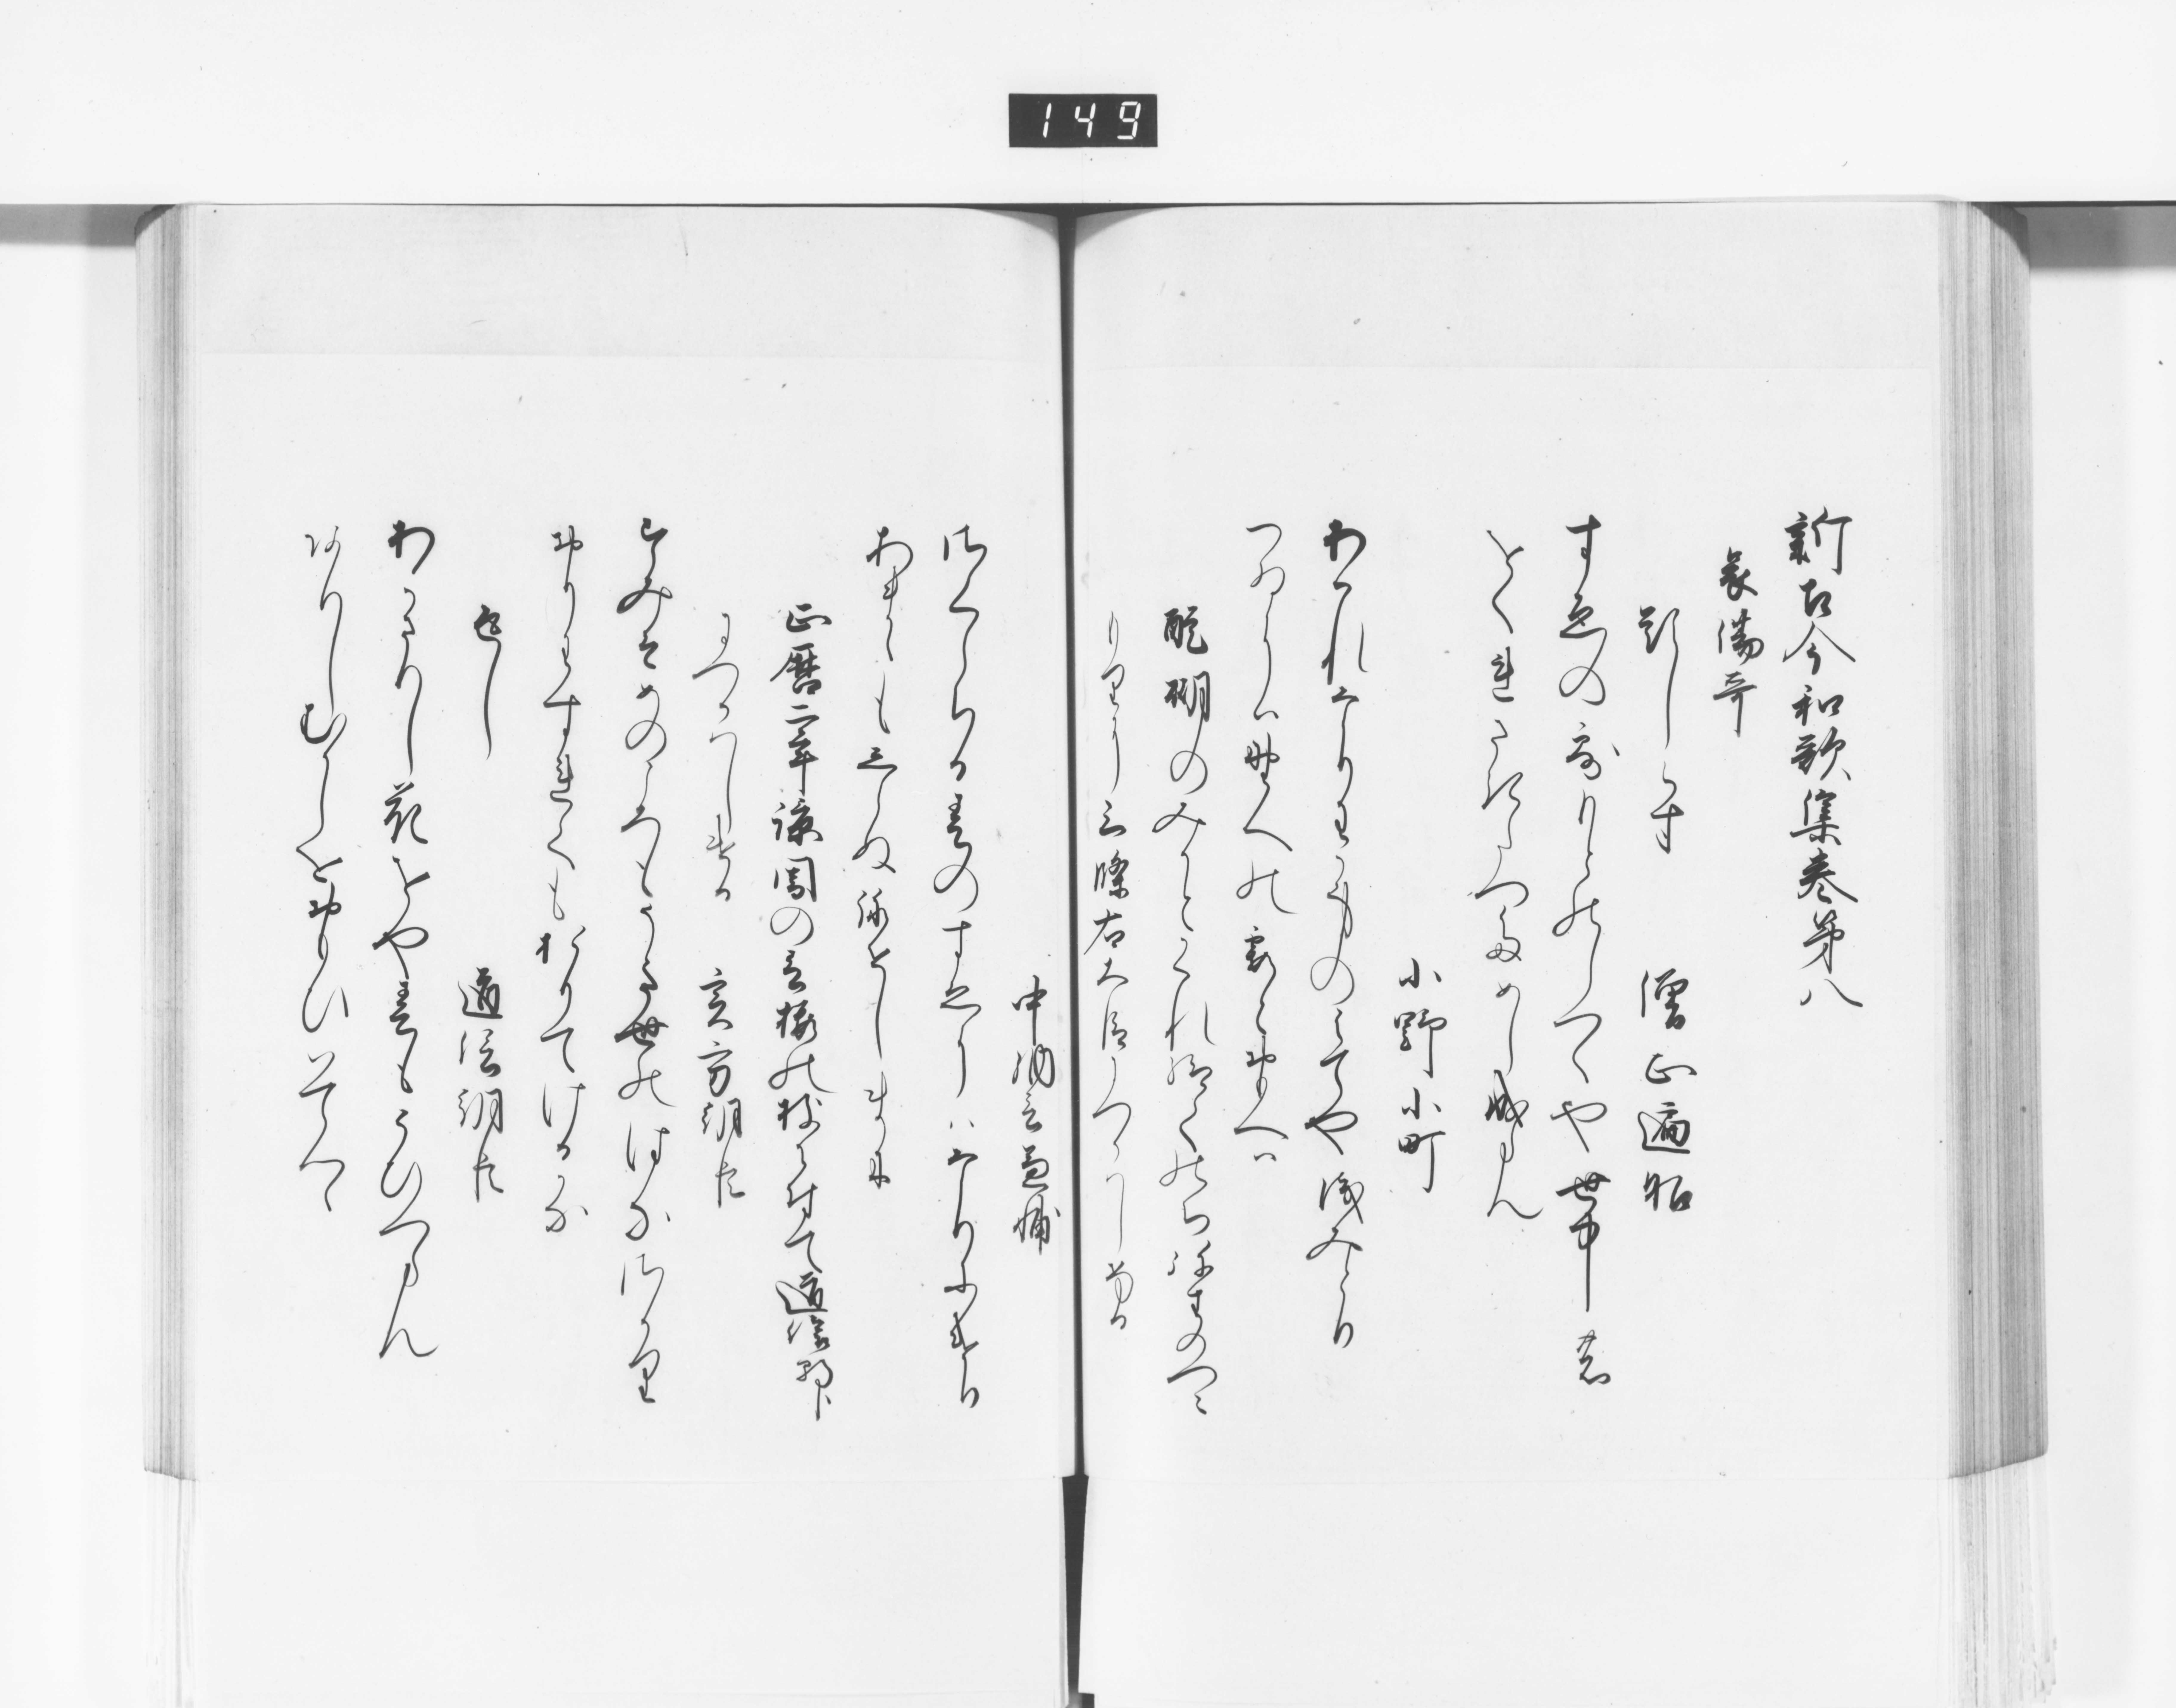 149
新古今和歌集巻第八
哀傷哥
題しらす　僧正遍昭
すゑの露もとのしつくや世中の
をくれさきたつためし成らん
小野小町
あはれなりわか身のはてや浅みとり
つゐには野への霞とおもへは
醍醐のみかとかくれ給てのちやよひのつこ
もりに三條右大臣につかはしける
中納言兼輔
さくらちる春のすゑにはなりにけり
あままもしらぬ詠せしまに
正暦二年諒闇の春桜の枝に付て道信朝
臣につかはしける　実方朝臣
すみそめのころもうき世の花さかり
おりわすれてもおりてけるかな
返し　道信朝臣
あかさりし花をや春もこひつらん
ありしむかしをおもひいてつゝ